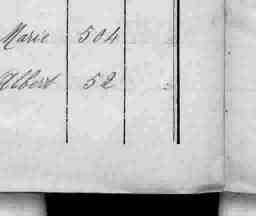 Marie 504
Albert 52